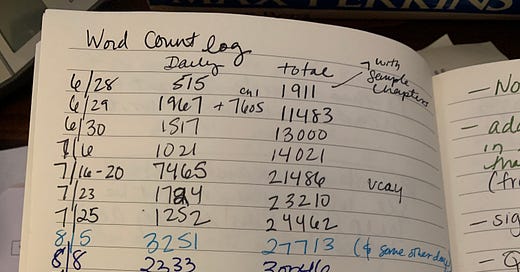 MAX PERKINS
Word Count log
Daily total
→ with Sample Chapters
6/28 515 1911
6/29 1967 + ch 1 7605 11483
6/30 1517 13000
7/6 1021 14021
7/16-20 7465 21486 vcay
7/23 1724 23210
7/25 1252 24462
8/5 3251 27713 (& some other days)
8/8 2333
— No
— ada
in
— sig